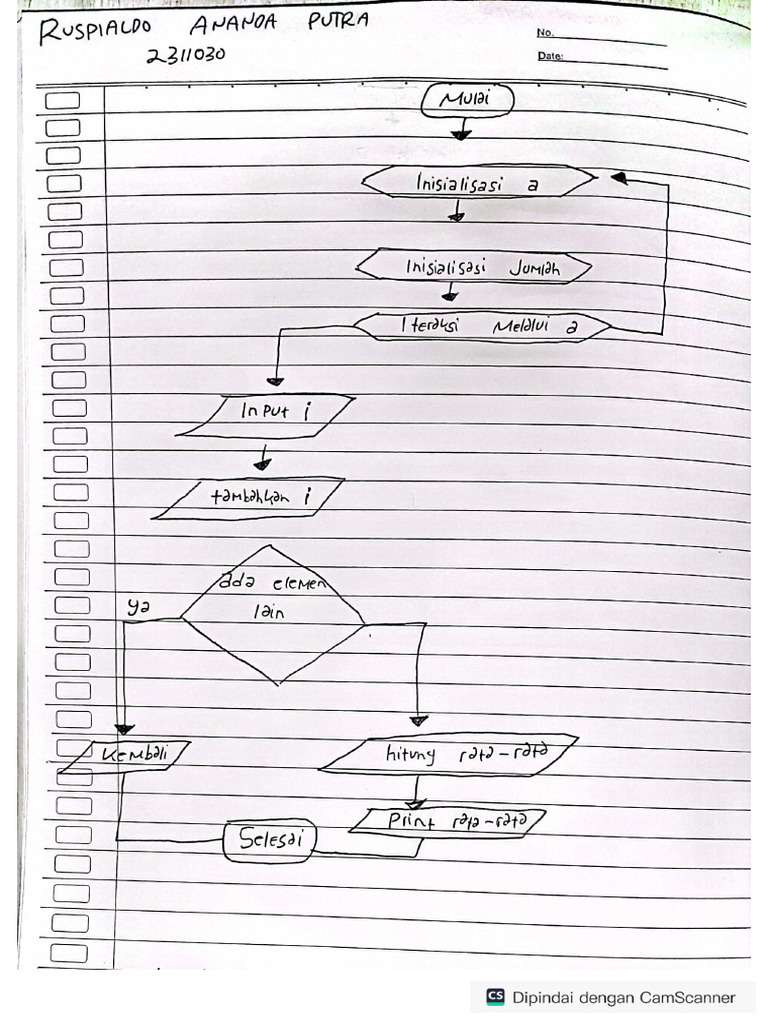 RUSPIALDO ANANDA PUTRA
2311030
No.
Date:
Mulai
Inisialisasi a
Inisialisasi Jumlah
Iterasi Melalui a
Input i
tambahkan i
ada elemen
lain
ya
Kembali
hitung rata-rata
Print rata-rata
Selesai
CS Dipindai dengan CamScanner